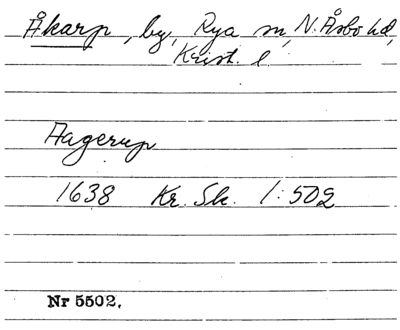 Åkarp, by, Rya sn, N. Åsbo hd,
Krist. l
Aagerup
1638 Kr. Sk. 1:502
Nr 5502.